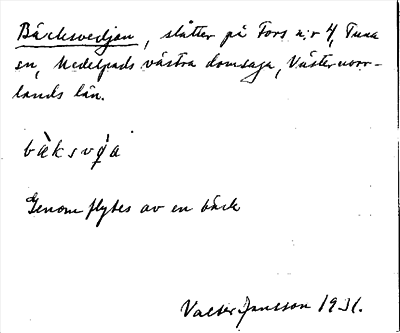 Bäcksvedjan, slåtter på Fors n:r 4, Tuna
sn, Medelpads västra domsaga, Västernorr-
lands län.
Genomflytes av en bäck
Valter Jansson 1931.